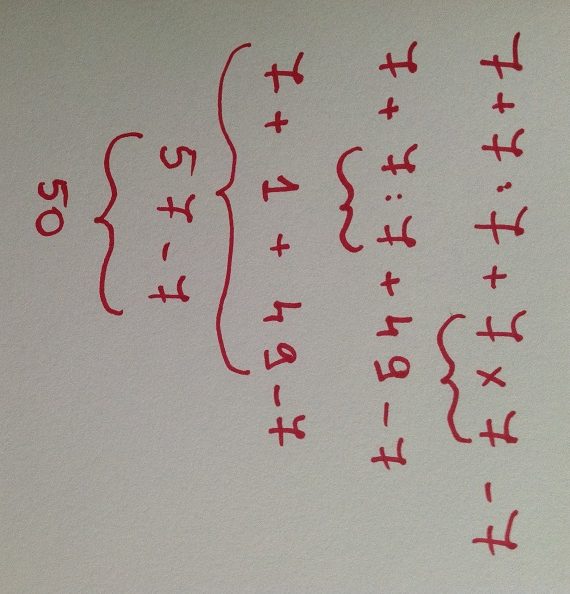 7 + 7 : 7 + 7 x 7 - 7
7 + 7 : 7 + 49 - 7
7 + 1 + 49 - 7
57 - 7
50